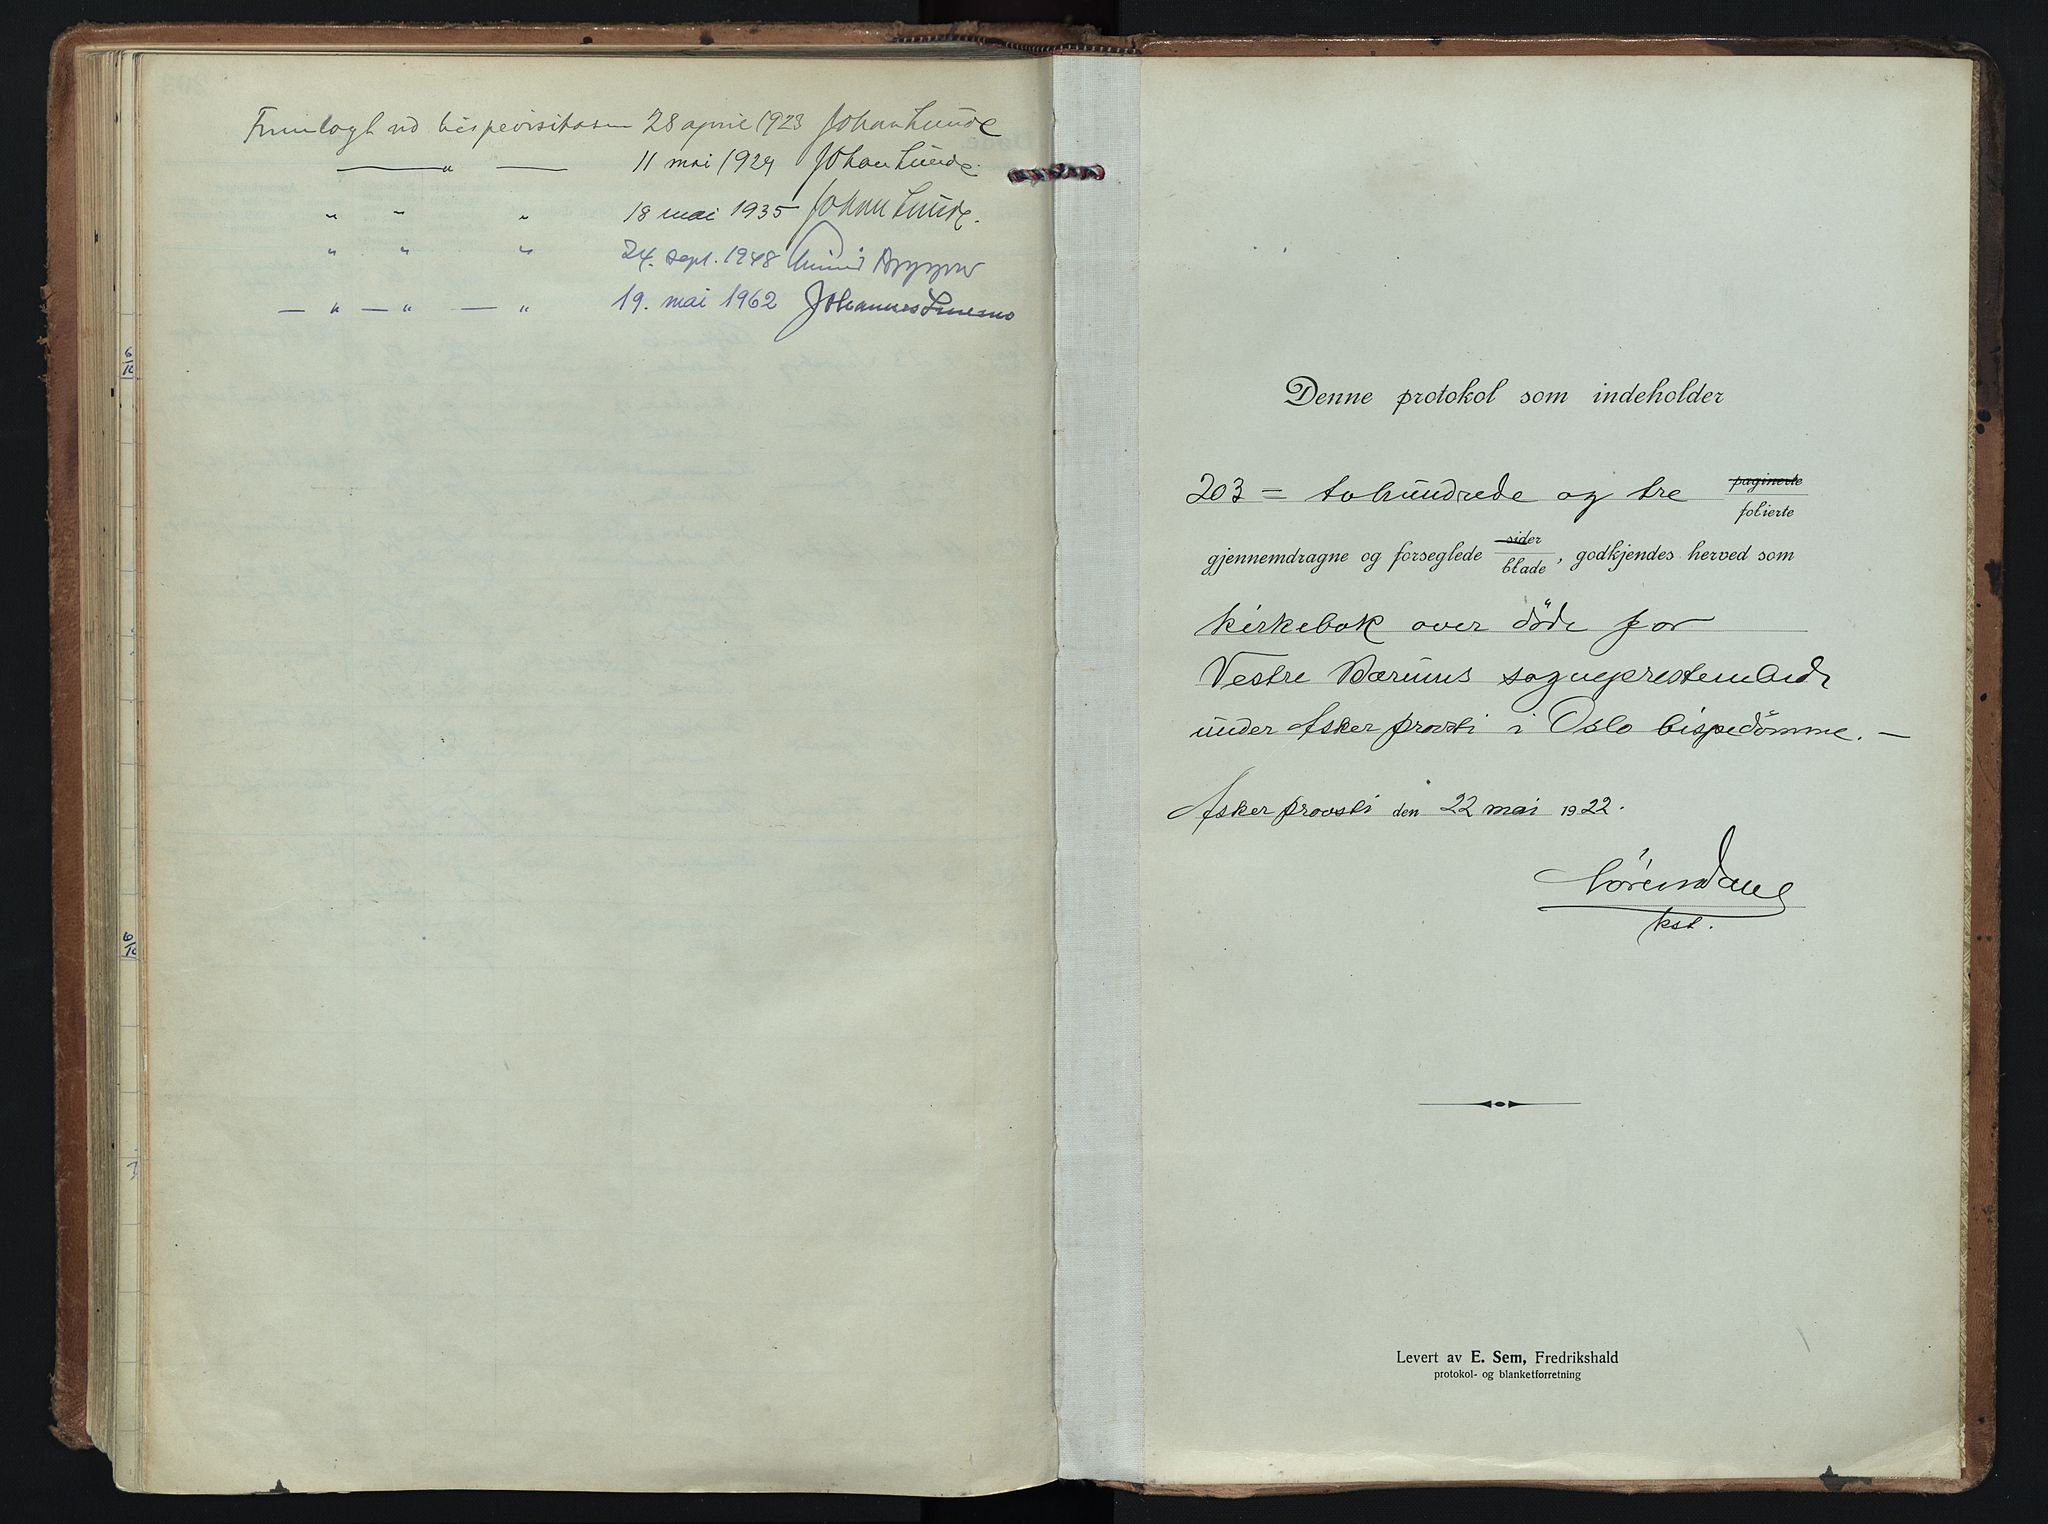 Fremlagt ved bispevisitasen 28 april 1923 Johan Lunde
— " — 11 mai 1929 Johan Lunde.
" " " 18 mai 1935 Johan Lunde.
" " " 24. sept. 1948 Arne Fjellbu
— " — " — " 19. mai 1962 Johannes Smemo
Denne protokol som indeholder
203 = tohundrede og tre paginerte
folierte
gjennemdragne og forseglede sider
blade, godkjendes herved som
kirkebok over døde for
Vestre Bærums sogneprestembede
under Asker provsti i Oslo bispedømme. —
Asker provsti den 22 mai 1922.
kst.
Levert av E. Sem, Fredrikshald
protokol- og blanketforretning